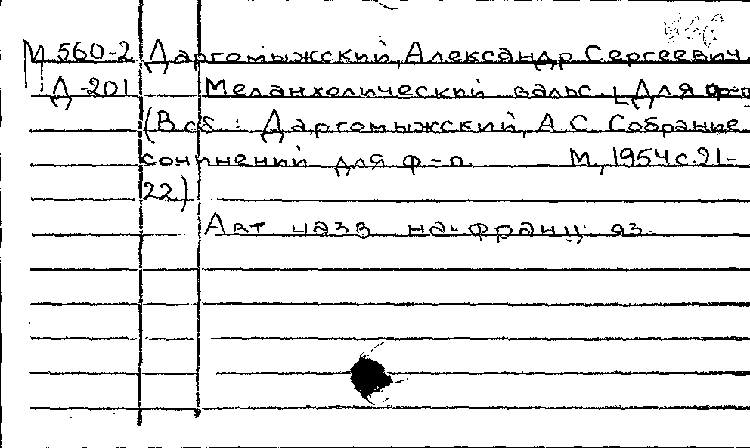 М 560-2 Даргомыжский, Александр Сергеевич.
Д-201 Меланхолический вальс. [Для ф-п
(В сб: Даргомыжский, А.С. Собрание
сочинений для ф-п. М, 1954 с. 21-
22)
Авт назв на франц яз.